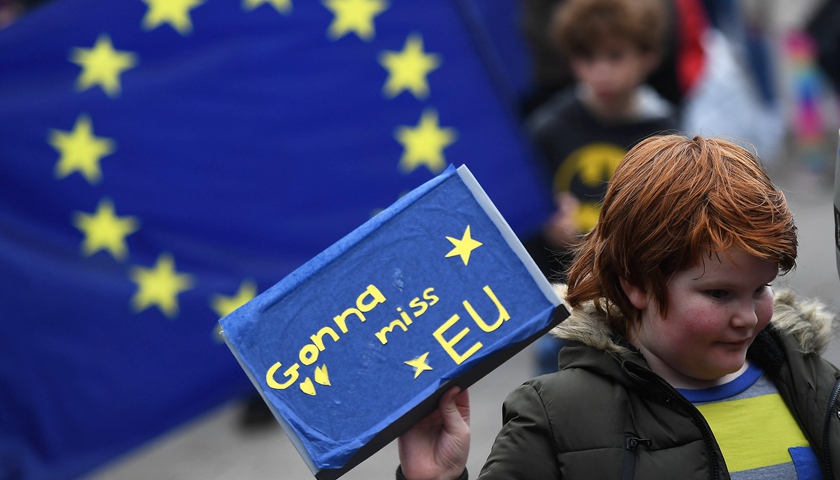 Gonna
miss
EU